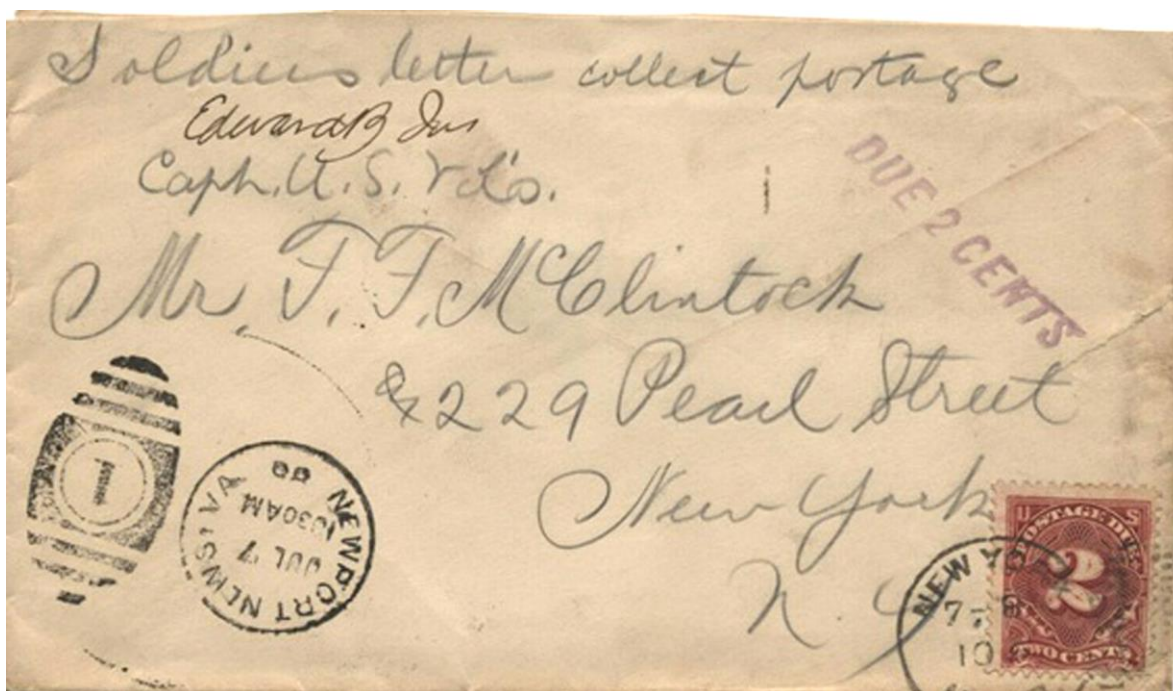 Soldiers letter collect postage
Edward B
Capt. U. S. Vol's.
DUE 2 CENTS
Mr. F. F. McClintock
229 Pearl Street
New York
N. Y.
1
NEWPORT NEWS, VA
JUL 7
1030AM
98
U S
POSTAGE DUE
2
TWO CENTS
NEW YO
7- 8
10